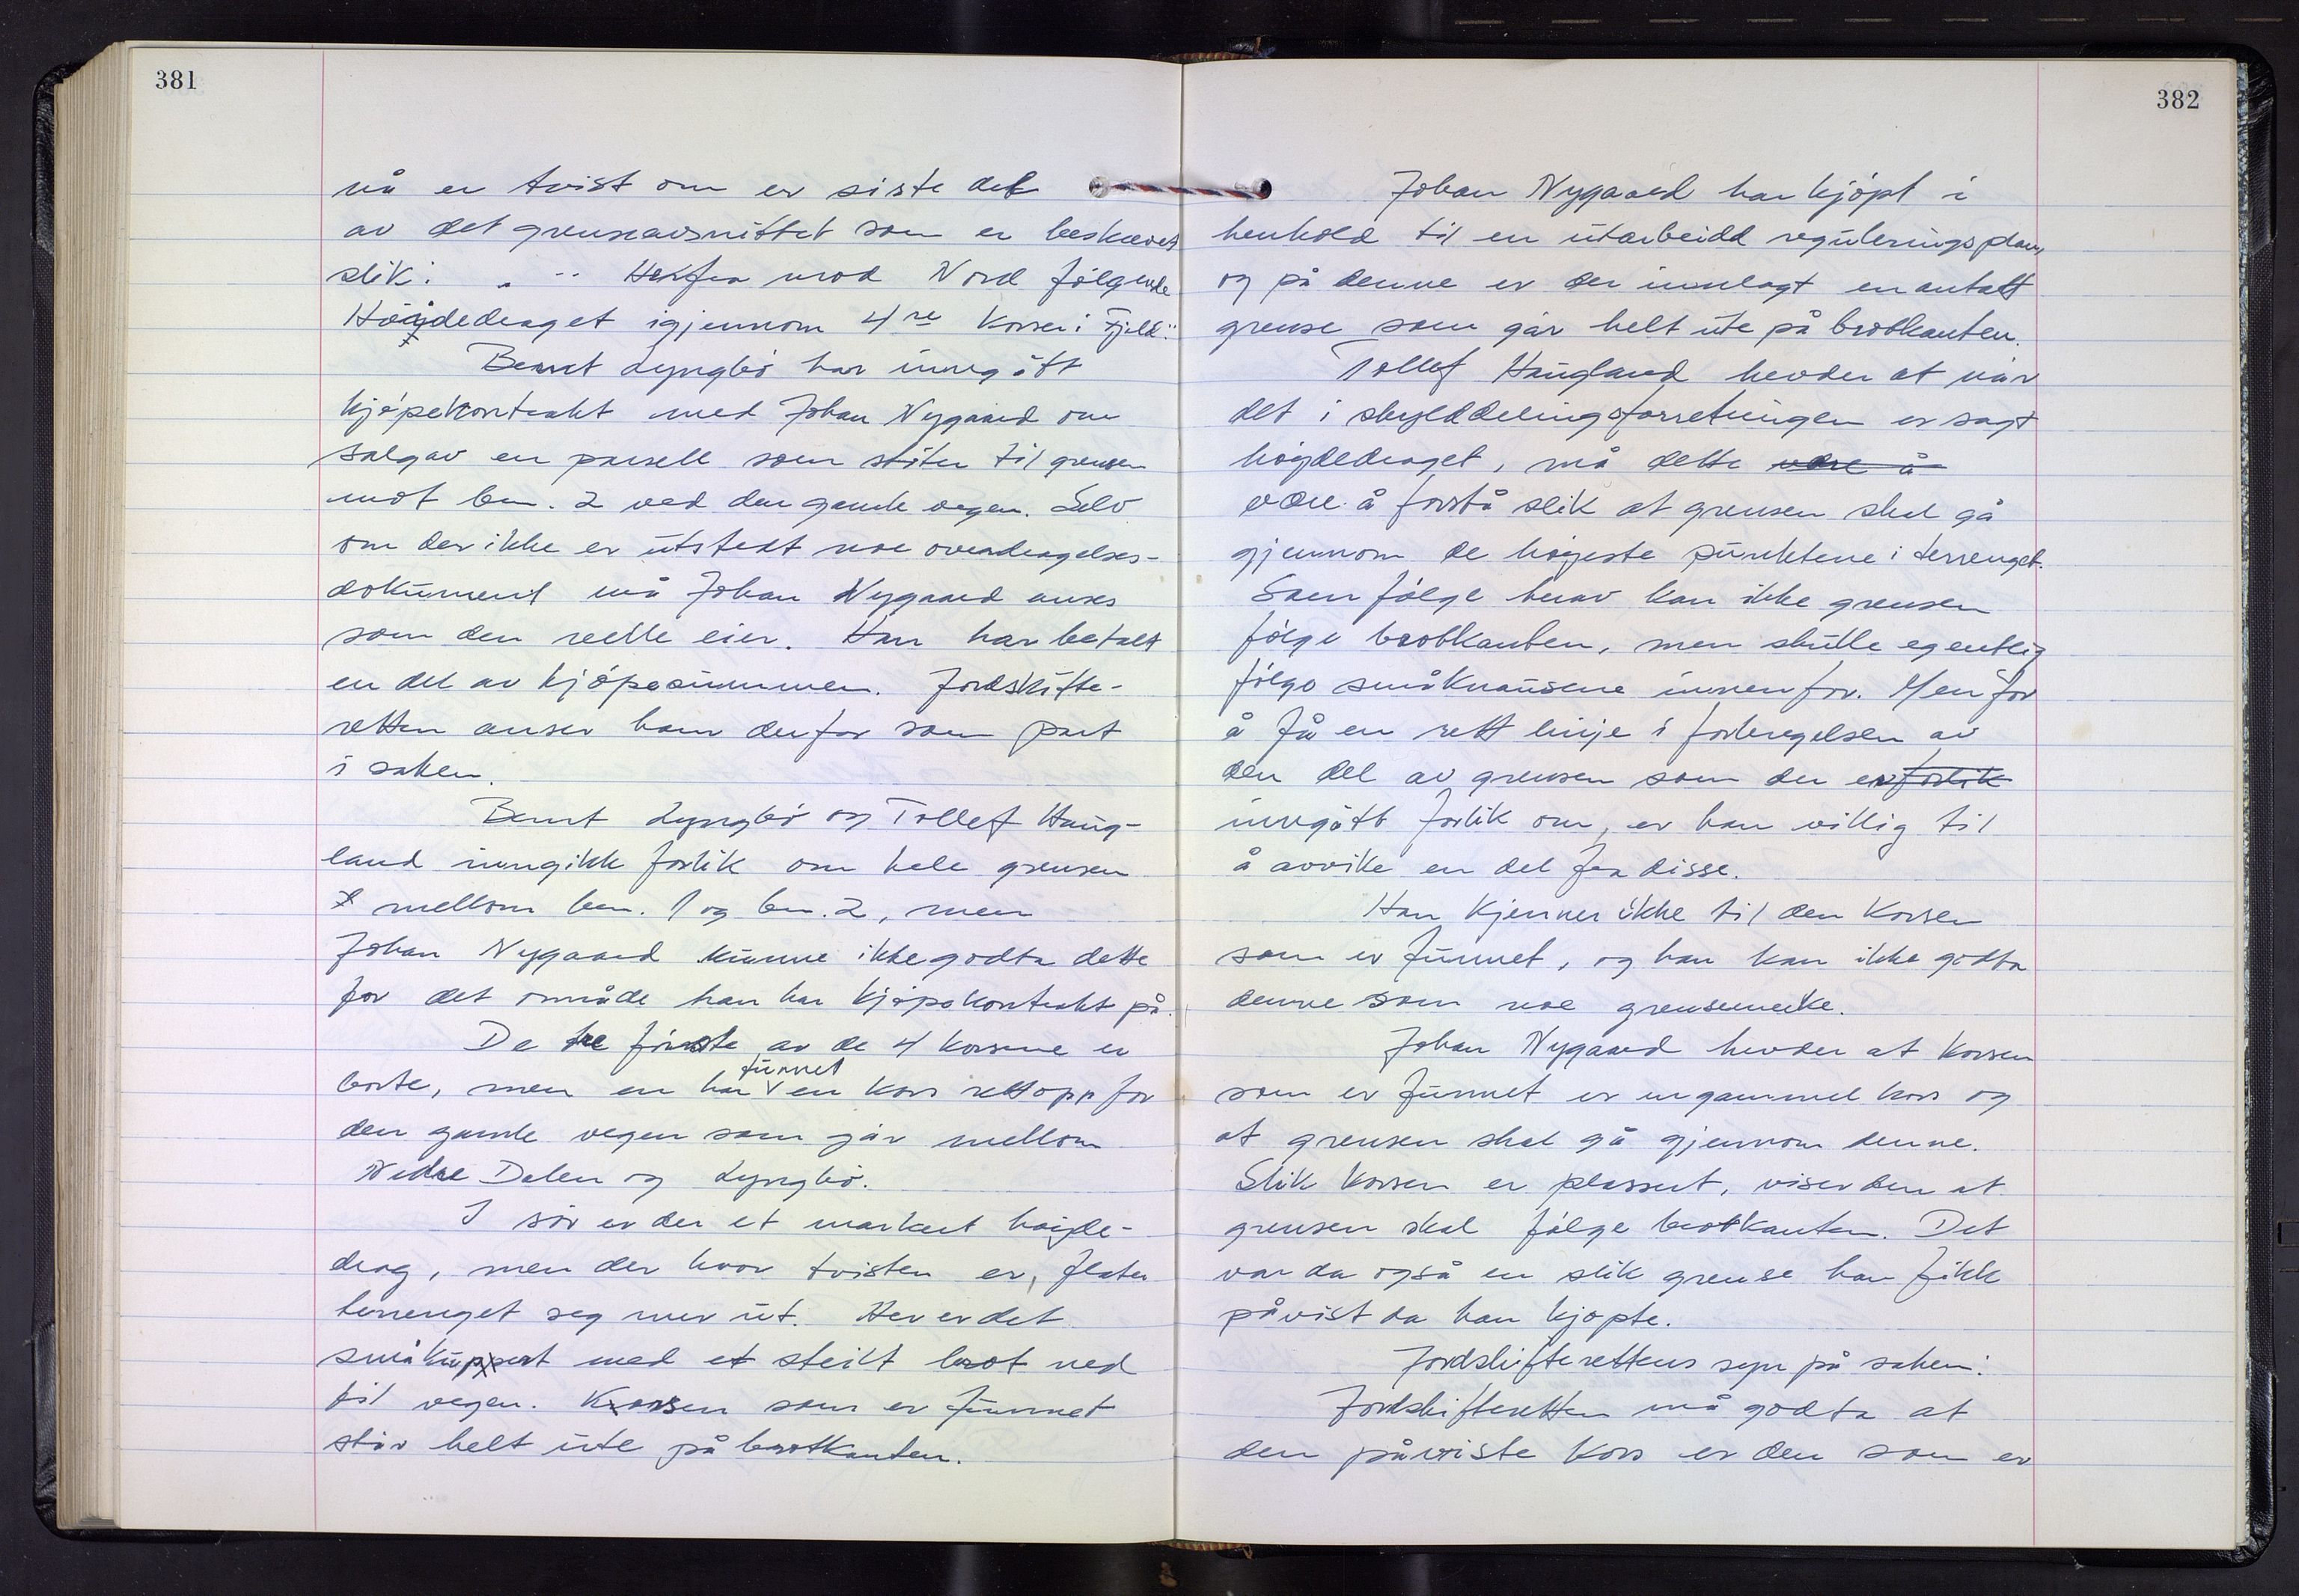 381
nå er tvist om er siste del
av det grenseavsnittet som er beskrevet
slik: " -- Herfra mod Nord følgende
Høidedraget igjennom 4re Korser i Fjeld."
Bernt Lyngbø har inngått
kjøpekontrakt med Johan Nygaard om
salg av en parsell som støter til grensen
mot bn. 2 ved den gamle vegen. Selv
om der ikke er utstedt noe overdragelses-
dokument må Johan Nygaard anses
som den reelle eier. Han har betalt
en del av kjøpesummen. Jordskifte-
retten anser ham derfor som part
i saken.
Bernt Lyngbø og Tollef Haug-
land inngikk forlik om hele grensen
mellom bn. 1 og bn. 2, men
Johan Nygaard kunne ikke godta dette
for det område han har kjøpekontrakt på.
De tre første av de 4 korsene er
borte, men en har funnet en kors rett opp for
den gamle vegen som går mellom
Nedre Dalen og Lyngbø.
I sør er der et markert høgde-
drag, men der hvor tvisten er, flater
terrenget seg mer ut. Her er det
småkupert med et steilt brot ned
til vegen. Korsen som er funnet
står helt ute på brotkanten.
382
Johan Nygaard har kjøpt i
henhold til en utarbeidd reguleringsplan,
og på denne er der innlagt en antatt
grense som går helt ute på brotkanten.
Tollef Haugland hevder at når
det i skylddelingsforretningen er sagt
høgdedraget, må dette være å
være å forstå slik at grensen skal gå
gjennom de høgeste punktene i terrenget.
Som følge herav kan ikke grensen
følge brotkanten, men skulle egentlig
følge småknausene innenfor. Men for
å få en rett linje i forlengelsen av
den del av grensen som der er forlik
inngått forlik om, er han villig til
å avvike en del fra disse.
Han kjenner ikke til den korsen
som er funnet, og han kan ikke godta
denne som noe grensemerke.
Johan Nygaard hevder at korsen
som er funnet er en gammel kors og
at grensen skal gå gjennom denne.
Slik korsen er plassert, viser den at
grensen skal følge brotkanten. Det
var da også en slik grense han fikk
påvist da han kjøpte.
Jordskifterettens syn på saken:
Jordskifteretten må godta at
den påviste kors er den som er